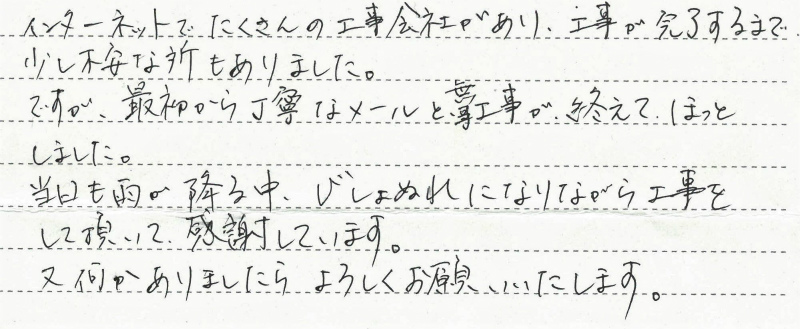 インターネットでたくさんの工事会社があり、工事が完了するまで
少し不安な所もありました。
ですが、最初から丁寧なメールと工事が、終えて、ほっと
しました。
当日も雨が降る中、びしょぬれになりながら工事を
して頂いて、感謝しています。
又何かありましたらよろしくお願いいたします。